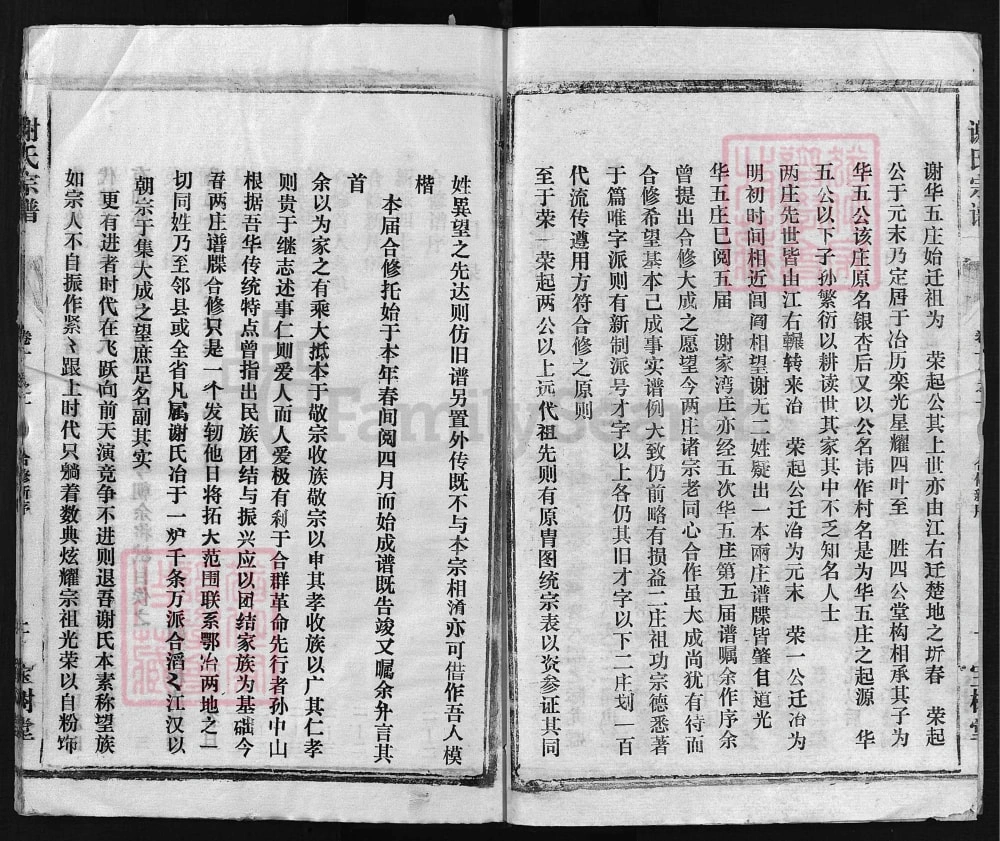 谢华五庄始迁祖为 荣起公其上世亦由江右迁楚地之圻春 荣起
公于元末乃定居于冶历栾光星耀四叶至 胜四公堂构相承其子为
华五公该庄原名银杏后又以公名讳作村名是为华五庄之起源 华
五公以下子孙繁衍以耕读世其家其中不乏知名人士
两庄先世皆由江右辗转来冶 荣起公迁冶为元末 荣一公迁冶为
明初时间相近闾阎相望谢无二姓疑出一本两庄谱牒皆肇自道光
华五庄已阅五届 谢家湾庄亦经五次华五庄第五届谱嘱余作序余
曾提出合修大成之愿望今两庄诸宗老同心合作虽大成尚犹有待而
合修希望基本已成事实谱例大致仍前略有损益二庄祖功宗德悉著
于篇唯字派则有新制派号才字以上各仍其旧才字以下二庄划一百
代流传遵用方符合修之原则
至于荣一荣起两公以上远代祖先则有原胄图统宗表以资参证其同
姓异望之先达则仿旧谱另置外传既不与本宗相淆亦可借作吾人模
楷
本届合修托始于本年春间阅四月而始成谱既告竣又嘱余弁言其
首
余以为家之有乘大抵本于敬宗收族敬宗以申其孝收族以广其仁孝
则贵于继志述事仁则爱人而人爱极有利于合群革命先行者孙中山
根据吾华传统特点曾指出民族团结与振兴应以团结家族为基础今
吾两庄谱牒合修只是一个发轫他日将拓大范围联系鄂冶两地之一
切同姓乃至邻县或全省凡属谢氏冶于一炉千条万派合滔〻江汉以
朝宗于集大成之望庶足名副其实
更有进者时代在飞跃向前天演竞争不进则退吾谢氏本素称望族
如宗人不自振作紧〻跟上时代只躺着数典炫耀宗祖光荣以自粉饰
谢氏宗谱
合修新序
宝树堂